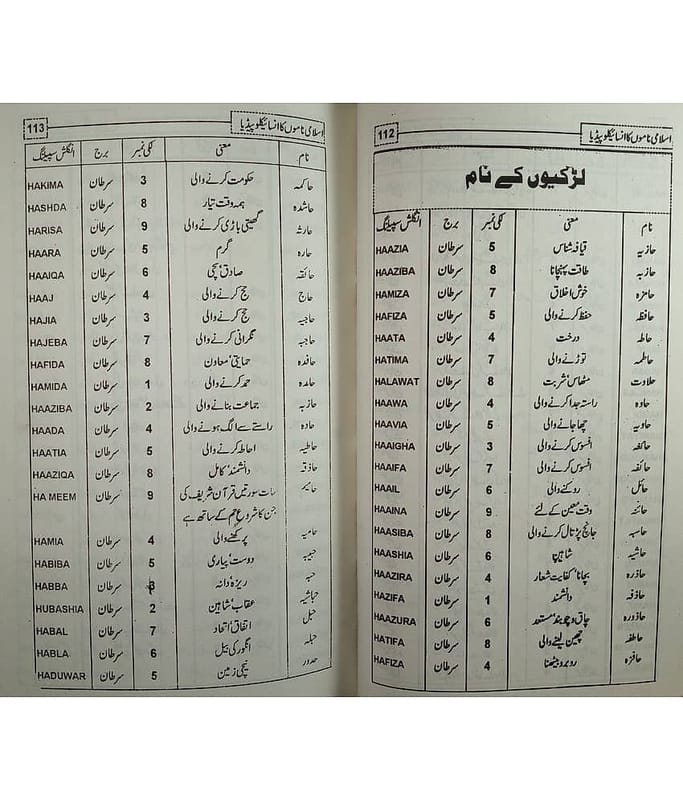 112 اسلامی ناموں کا انسائیکلوپیڈیا
لڑکیوں کے نام
نام معنی لکی نمبر برج انگلش سپیلنگ
حازیہ قیافہ شناس 5 سرطان HAAZIA
حازبہ طاقت پہنچانا 8 سرطان HAAZIBA
حامزہ خوش اخلاق 7 سرطان HAMIZA
حافظہ حفظ کرنے والی 5 سرطان HAFIZA
حاطہ درخت 4 سرطان HAATA
حاطمہ توڑنے والی 7 سرطان HATIMA
حلاوت مٹھاس' شربت 8 سرطان HALAWAT
حاوہ راستہ جدا کرنے والی 4 سرطان HAAWA
حاویہ چھا جانے والی 5 سرطان HAAVIA
حائفہ افسوس کرنے والی 3 سرطان HAAIGHA
حائفہ افسوس کرنے والی 7 سرطان HAAIFA
حائل روکنے والی 6 سرطان HAAIL
حائنہ وقت معین کے لئے 9 سرطان HAAINA
حاسبہ جانچ پڑتال کرنے والی 8 سرطان HAASIBA
حاشیہ 6 سرطان HAASHIA
حاذرہ بچانا' کفایت شعار 4 سرطان HAAZIRA
حاذفہ دانشمند 1 سرطان HAZIFA
حاذورہ چاق و چوبند' مستعد 6 سرطان HAAZURA
حاطفہ چھین لینے والی 8 سرطان HATIFA
حافزہ روبرو بیٹھنا 4 سرطان HAFIZA
113 اسلامی ناموں کا انسائیکلوپیڈیا
نام معنی لکی نمبر برج انگلش سپیلنگ
حاکمہ حکومت کرنے والی 3 سرطان HAKIMA
حاشدہ ہمہ وقت تیار 8 سرطان HASHDA
حارثہ کھیتی باڑی کرنے والی 9 سرطان HARISA
حارہ گرم 5 سرطان HAARA
حائقہ صادق' سچی 6 سرطان HAAIQA
حاج حج کرنے والی 4 سرطان HAAJ
حاجیہ حج کرنے والی 3 سرطان HAJIA
حاجبہ نگرانی کرنے والی 7 سرطان HAJEBA
حافدہ حمایتی' معاون 8 سرطان HAFIDA
حامدہ حمد کرنے والی 1 سرطان HAMIDA
حازبہ جماعت بنانے والی 2 سرطان HAAZIBA
حادہ راستے سے الگ ہونے والی 4 سرطان HAADA
حاطیہ احاطہ کرنے والی 5 سرطان HAATIA
حاذقہ دانشمند' کامل 8 سرطان HAAZIQA
حامیم سات سورتیں قرآن شریف کی 9 سرطان HA MEEM
جن کا شروع حم کے ساتھ ہے
حامیہ پرکھنے والی 4 سرطان HAMIA
حبیبہ دوست' پیاری 5 سرطان HABIBA
حبہ ریزہ' دانہ 3 سرطان HABBA
حباشیہ عقاب' شاہین 2 سرطان HUBASHIA
حبل اتفاق' اتحاد 7 سرطان HABAL
حبلہ انگور کی بیل 6 سرطان HABLA
حدور نیچی زمین 5 سرطان HADUWAR